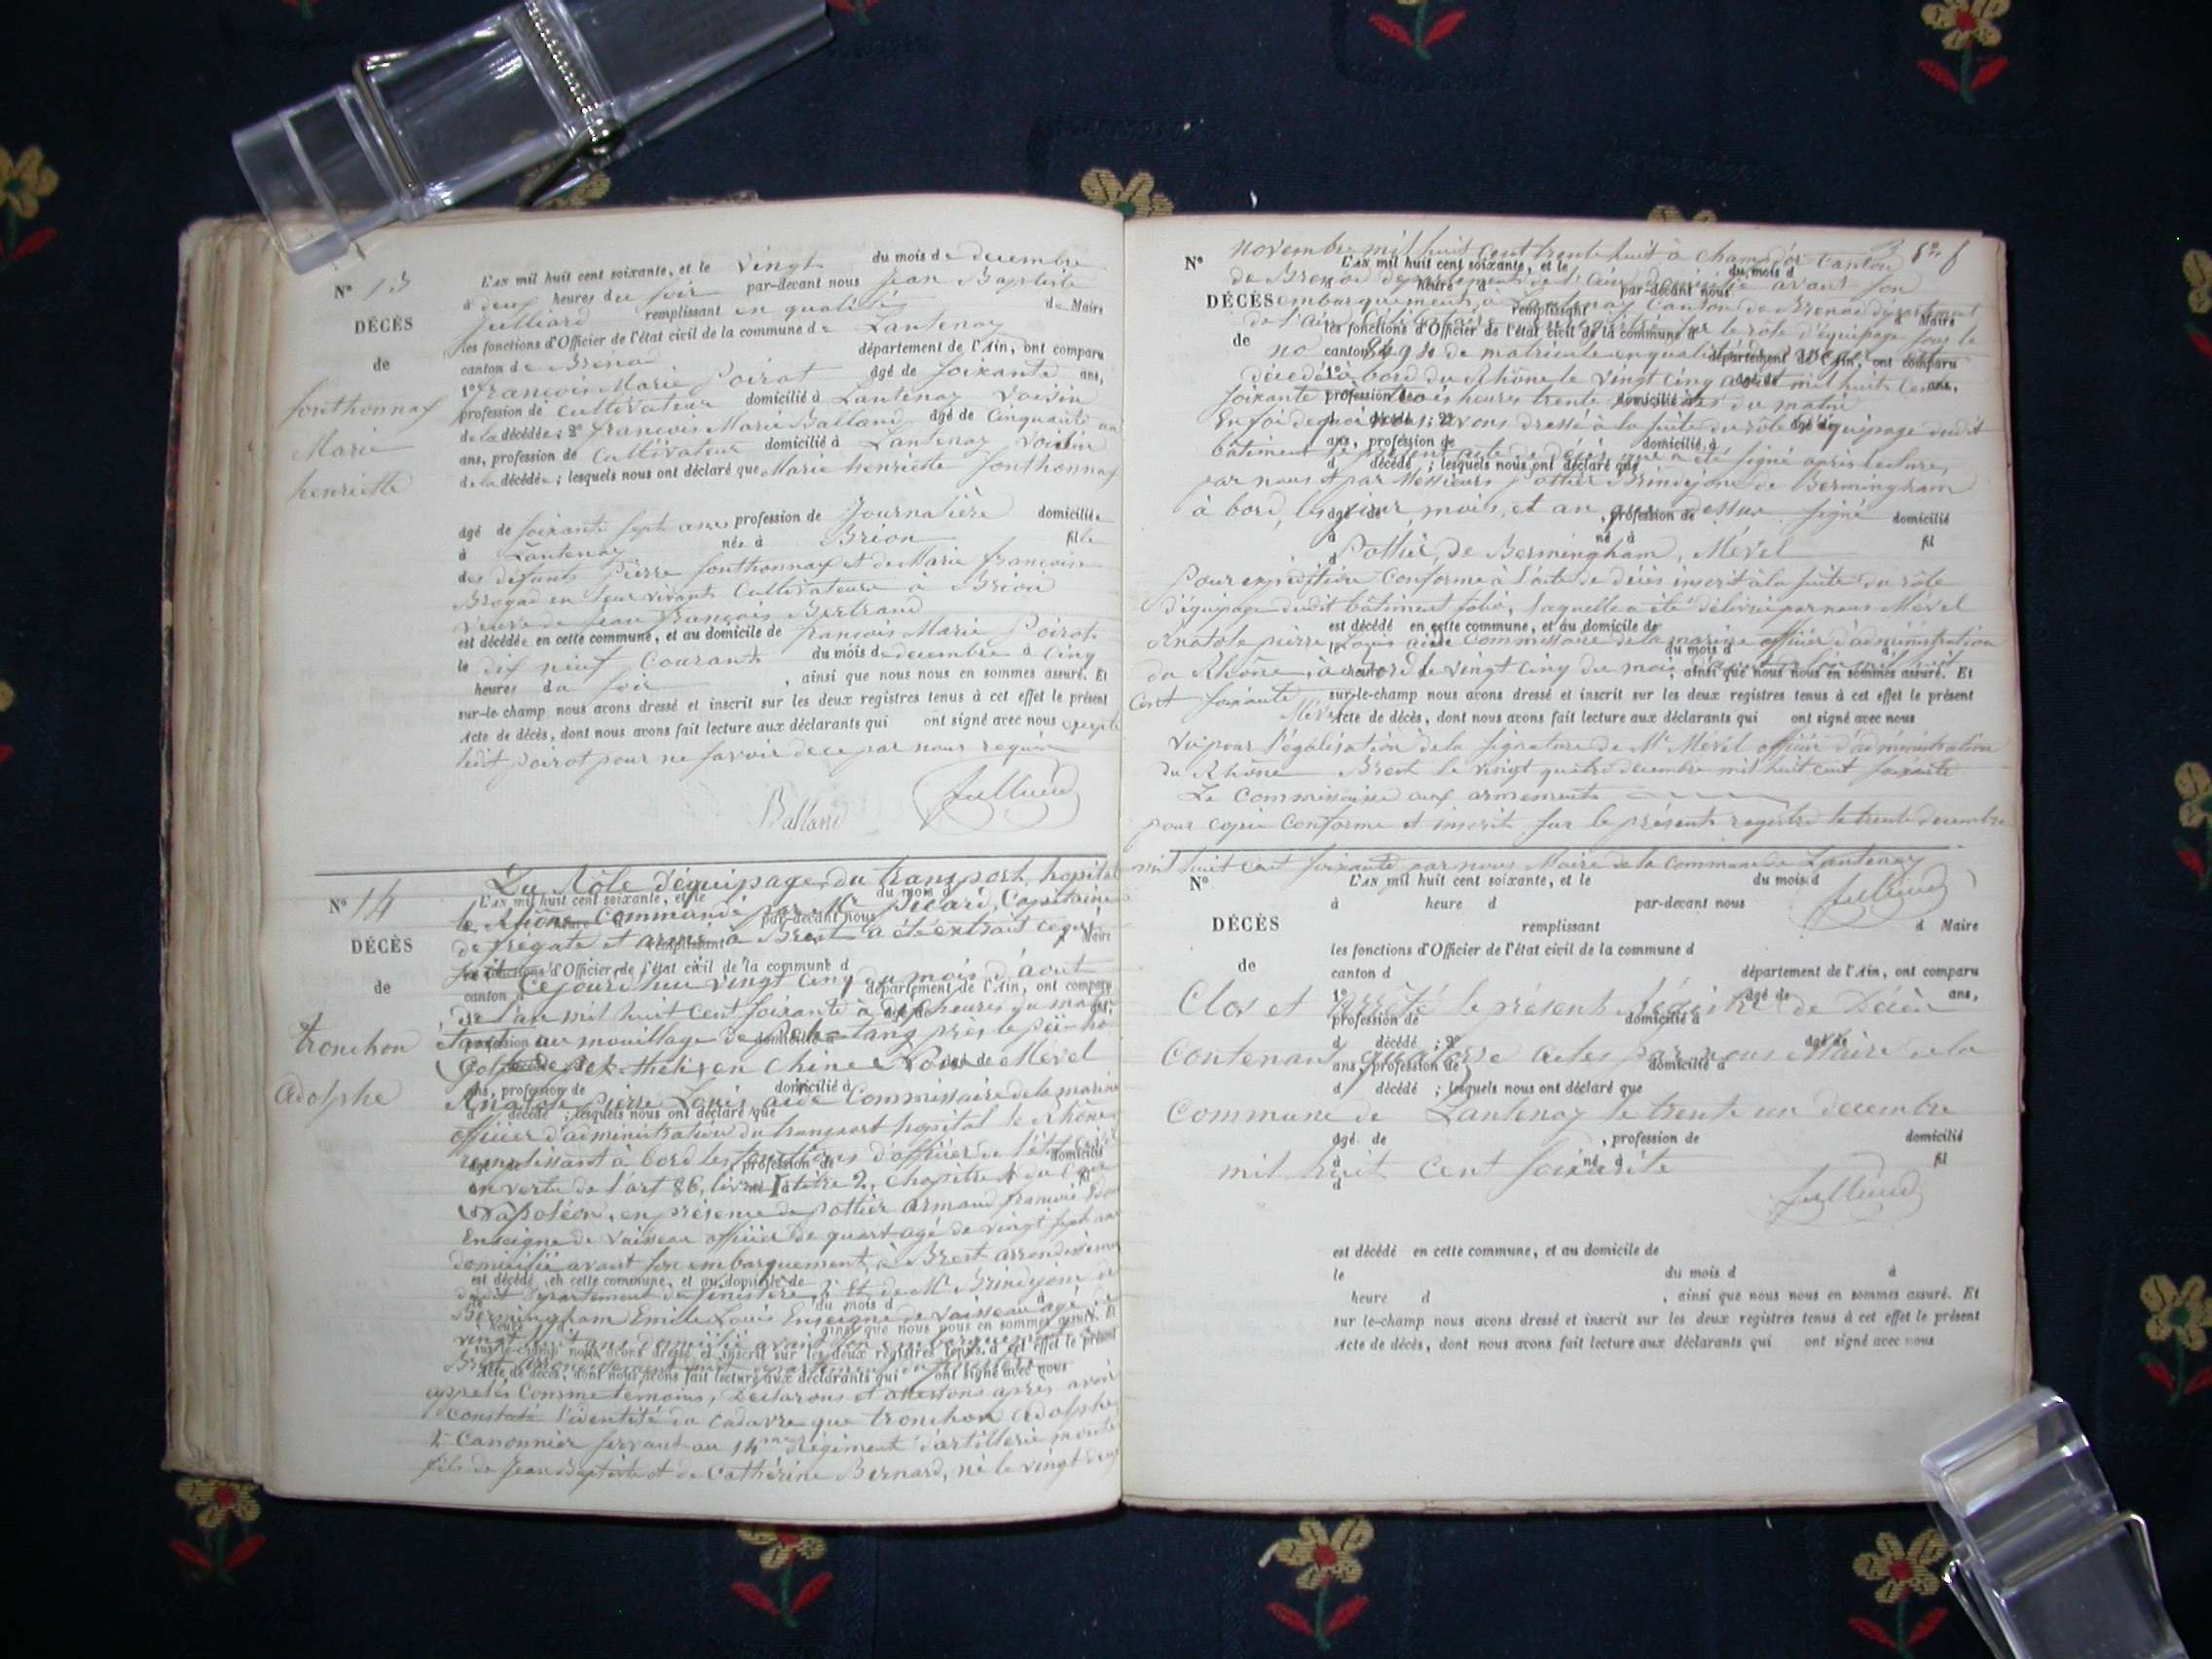 N° 13
DÉCÈS
de
fonthonnax
Marie
henriette
L'AN mil huit cent soixante, et le vingt du mois de decembre
à deux heures du soir par-devant nous Jean Baptiste
Julliard remplissant en qualité de Maire
les fonctions d'Officier de l'état civil de la commune de Lantenay
canton de Brénod département de l'Ain, ont comparu
1° françois Marie Poirot âgé de soixante ans,
profession de cultivateur domicilié à Lantenay voisin
de la décédée ; 2° françois Marie Balland âgé de cinquante un
ans, profession de cultivateur domicilié à Lantenay voisin
de la décédée ; lesquels nous ont déclaré que Marie henriette fonthonnax
âgé de soixante sept ans profession de Journalière domiciliée
à Lantenay née à Brion fille
des défunts Pierre fonthonnax et de Marie françoise
en leur vivant Cultivateurs à Brion
veuve de Jean françois Bertrand
est décédée en cette commune, et au domicile de françois Marie Poirot
le dix neuf courant du mois de decembre à cinq
heures du soir , ainsi que nous nous en sommes assuré. Et
sur-le-champ nous avons dressé et inscrit sur les deux registres tenus à cet effet le présent
Acte de décès, dont nous avons fait lecture aux déclarants qui ont signé avec nous excepté
ledit Poirot pour ne savoir de ce par nous requis
Balland Julliard
N° 14
DÉCÈS
de
tronchon
adolphe
Du Rôle d'équipage du transport hopital
le Rhône Commandé par Mr Picard, Capitaine
de frégate et armé à Brest a été extrait ce qui
suit
Cejourd'hui vingt cinq du mois d'août
de l'an mil huit cent soixante à dix heures du matin
étant au mouillage de peh-tang près le peï-ho
Golfe de pet-cheli en chine Nous Mével
Anatole Pierre Louis aide Commissaire de la marine
officier d'administration du transport hopital le Rhône
remplissant à bord les fonctions d'officier de l'état civil
en vertu de l'art 86, livre 1 titre 2, chapitre 4 du code
Napoléon, en présence de Pottier armand francois
Enseigne de vaisseau officier de quart agé de vingt sept ans
domicilié avant son embarquement à Brest arrondissement
dudit département du finistère, 2° Et de Mr Brindejonc de
Bermingham Emile Louis Enseigne de vaisseau agé de
vingt huit ans domicilié avant son embarquement à
Brest arrondissement dudit département du finistère
appelés comme témoins, Déclarons et attestons après avoir
constaté l'identité du cadavre que tronchon adolphe
2e canonnier servant au 14me Régiment d'artillerie monté
fils de Jean Baptiste et de Cathérine Bernard, né le vingt deux
N°
DÉCÈS
de
novembre mil huit cent trente huit à champdor canton
de Brenod département de l'ain, domicilié avant son
embarquement, à Lantenay Canton de Brenod département
de l'ain sur le rôle d'équipage sous le
no de matricule en qualité de
décédé à bord du Rhône le vingt cinq août mil huit cent
soixante à trois heures trente minutes du matin
En foi de quoi nous avons dressé à la suite du rôle d'équipage dudit
bâtiment le présent acte de décès qui a été signé après lecture,
par nous et par Messieurs Pottier Brindejonc de Bermingham
à bord, les jour, mois, et an que dessus signé
Pottier, de Bermingham, Mével
Pour expédition conforme à l'acte de décès inscrit à la suite du rôle
d'équipage dudit bâtiment folio, laquelle a été délivrée par nous Mével
Anatole pierre Louis aide Commissaire de la marine officier d'administration
du Rhône, à bord le vingt cinq du mois d'août mil huit
cent soixante
Mével
Vu pour légalisation de la signature de Mr Mével officier d'administration
du Rhône Brest le vingt quatre decembre mil huit cent soixante
Le Commissaire aux armements
pour copie conforme et inscrit sur le présent registre le trente decembre
mil huit cent soixante par nous Maire de la commune de Lantenay
Julliard
N°
DÉCÈS
de
L'AN mil huit cent soixante, et le du mois d
à heure d par-devant nous
remplissant d Maire
les fonctions d'Officier de l'état civil de la commune d
canton d département de l'Ain, ont comparu
Clos et arrêté le présent Régistre de Décès
Contenant quatorze actes par nous Maire de la
d décédé ; lesquels nous ont déclaré que
Commune de Lantenay le trente un decembre
âgé de , profession de domicilié
mil huit cent soixante
Julliard
est décédé en cette commune, et au domicile de
le du mois d à
heure d , ainsi que nous nous en sommes assuré. Et
sur le-champ nous avons dressé et inscrit sur les deux registres tenus à cet effet le présent
Acte de décès, dont nous avons fait lecture aux déclarants qui ont signé avec nous